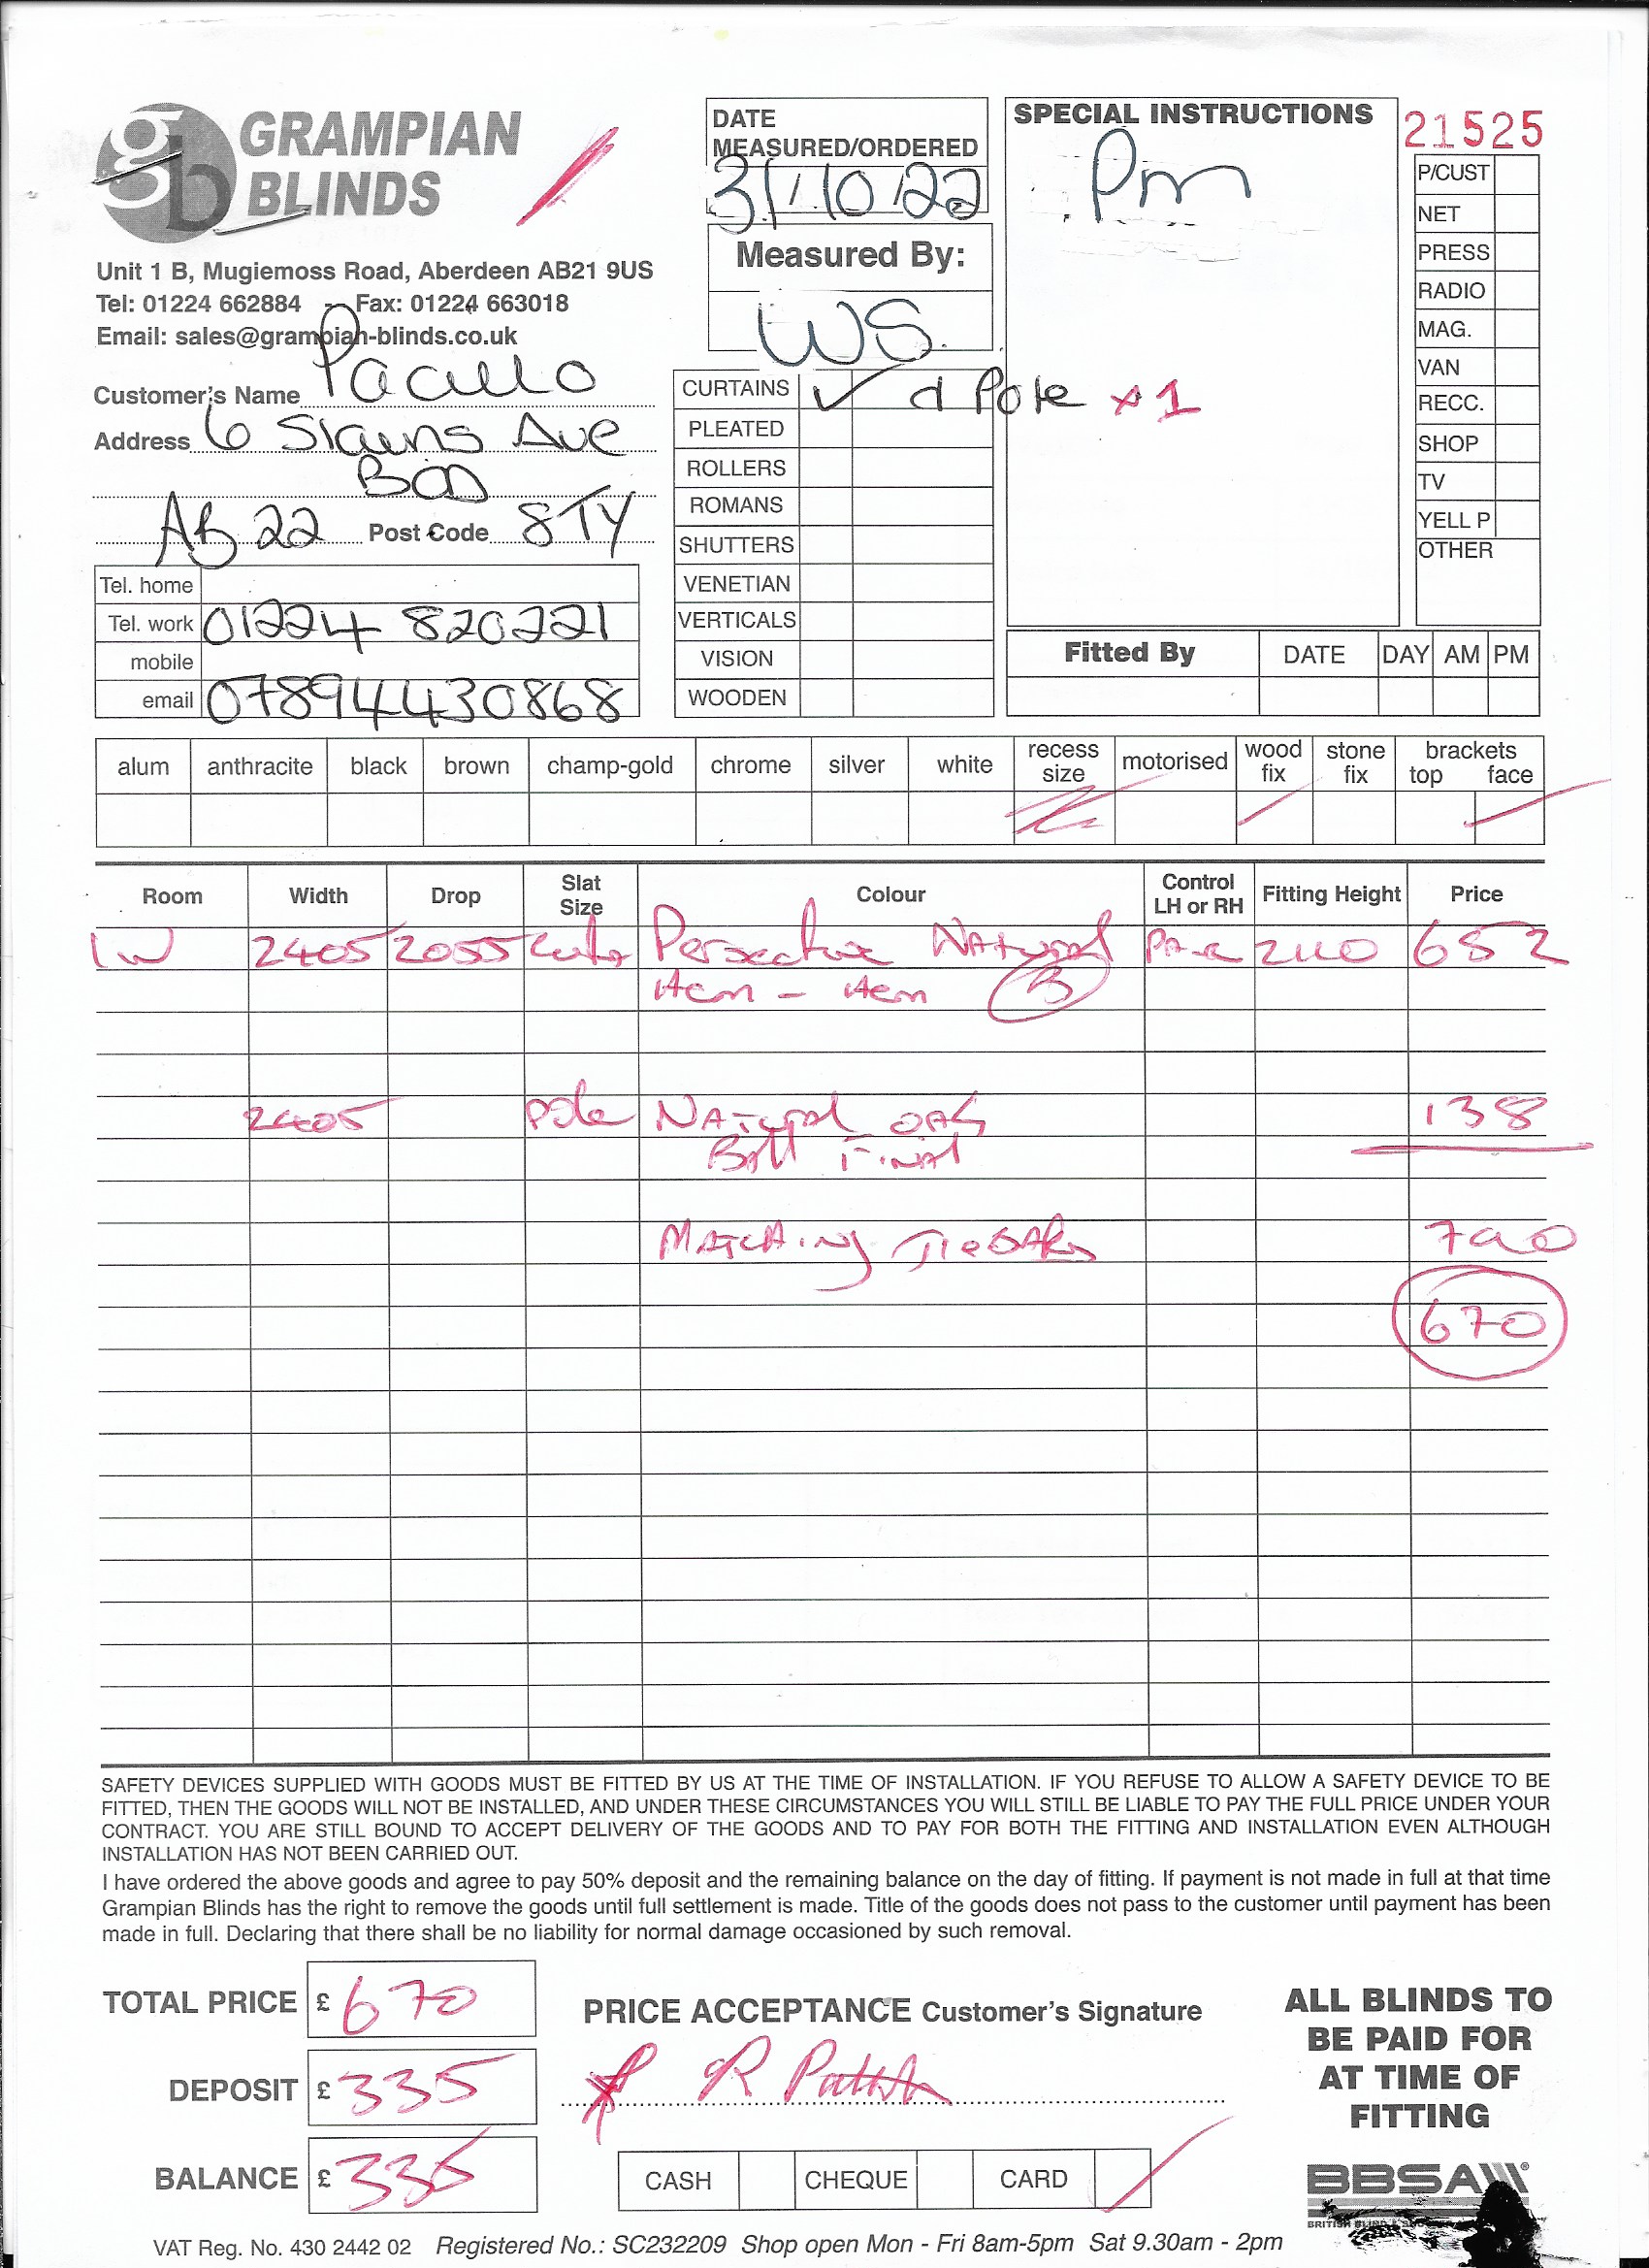 GRAMPIAN
BLINDS
Unit 1 B, Mugiemoss Road, Aberdeen AB21 9US
Tel: 01224 662884 - Fax: 01224 663018
Email: sales@grampian-blinds.co.uk
Customer's Name
Address 6 Slains Ave
BOD
AB22 Post Code 8TY
Tel. home
Tel. work 01224 820221
mobile
email 07894430868
DATE
MEASURED/ORDERED
31/10/22
Measured By:
WS
CURTAINS ✓ & Pole x 1
PLEATED
ROLLERS
ROMANS
SHUTTERS
VENETIAN
VERTICALS
VISION
WOODEN
SPECIAL INSTRUCTIONS
Pm
21525
P/CUST
NET
PRESS
RADIO
MAG.
VAN
RECC.
SHOP
TV
YELL P
OTHER
Fitted By DATE DAY AM PM
alum anthracite black brown champ-gold chrome silver white recess size motorised wood fix stone fix brackets top face
Room Width Drop Slat Size Colour Control LH or RH Fitting Height Price
1W 2405 2055 Natural Pair 652
Hem - Hem 3
2405 Pole Natural Oak 138
Ball Finial
Matching 790
670
SAFETY DEVICES SUPPLIED WITH GOODS MUST BE FITTED BY US AT THE TIME OF INSTALLATION. IF YOU REFUSE TO ALLOW A SAFETY DEVICE TO BE
FITTED, THEN THE GOODS WILL NOT BE INSTALLED, AND UNDER THESE CIRCUMSTANCES YOU WILL STILL BE LIABLE TO PAY THE FULL PRICE UNDER YOUR
CONTRACT. YOU ARE STILL BOUND TO ACCEPT DELIVERY OF THE GOODS AND TO PAY FOR BOTH THE FITTING AND INSTALLATION EVEN ALTHOUGH
INSTALLATION HAS NOT BEEN CARRIED OUT.
I have ordered the above goods and agree to pay 50% deposit and the remaining balance on the day of fitting. If payment is not made in full at that time
Grampian Blinds has the right to remove the goods until full settlement is made. Title of the goods does not pass to the customer until payment has been
made in full. Declaring that there shall be no liability for normal damage occasioned by such removal.
TOTAL PRICE £ 670
DEPOSIT £ 335
BALANCE £ 335
PRICE ACCEPTANCE Customer's Signature
CASH CHEQUE CARD
ALL BLINDS TO
BE PAID FOR
AT TIME OF
FITTING
BBSA
VAT Reg. No. 430 2442 02 Registered No.: SC232209 Shop open Mon - Fri 8am-5pm Sat 9.30am - 2pm